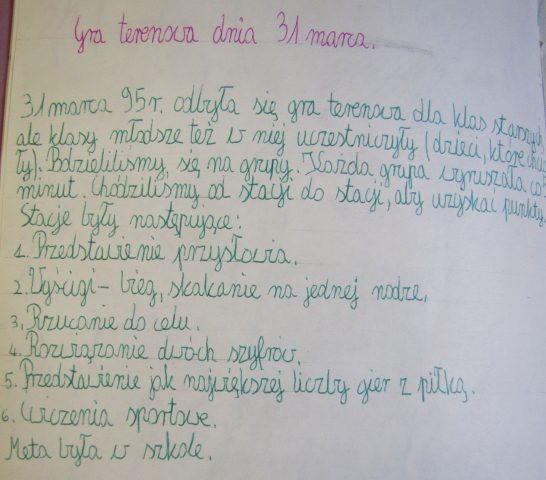 Gra terenowa dnia 31 marca.
31 marca 95r. odbyła się gra terenowa dla klas starszych,
ale klasy młodsze też w niej uczestniczyły (dzieci, które chcia
ły). Podzieliliśmy się na grupy. Każda grupa wyruszała co
minut. Chodziliśmy od stacji do stacji, aby uzyskać punkty.
Stacje były następujące:
1. Przedstawienie przysłowia.
2. Wyścigi - bieg, skakanie na jednej nodze.
3. Rzucanie do celu.
4. Rozwiązanie dwóch szyfrów.
5. Przedstawienie jak największej liczby gier z piłką.
6. Ćwiczenia sportowe.
Meta była w szkole.